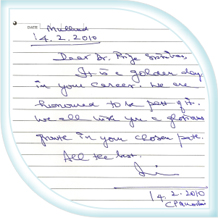 DATE: Mulland
14.2.2010
Dear Dr. Priya
It is a golden day
in your career. We are
honoured to be part of it.
We all wish you a glorious
in your chosen path.
All the best.
14.2-2010